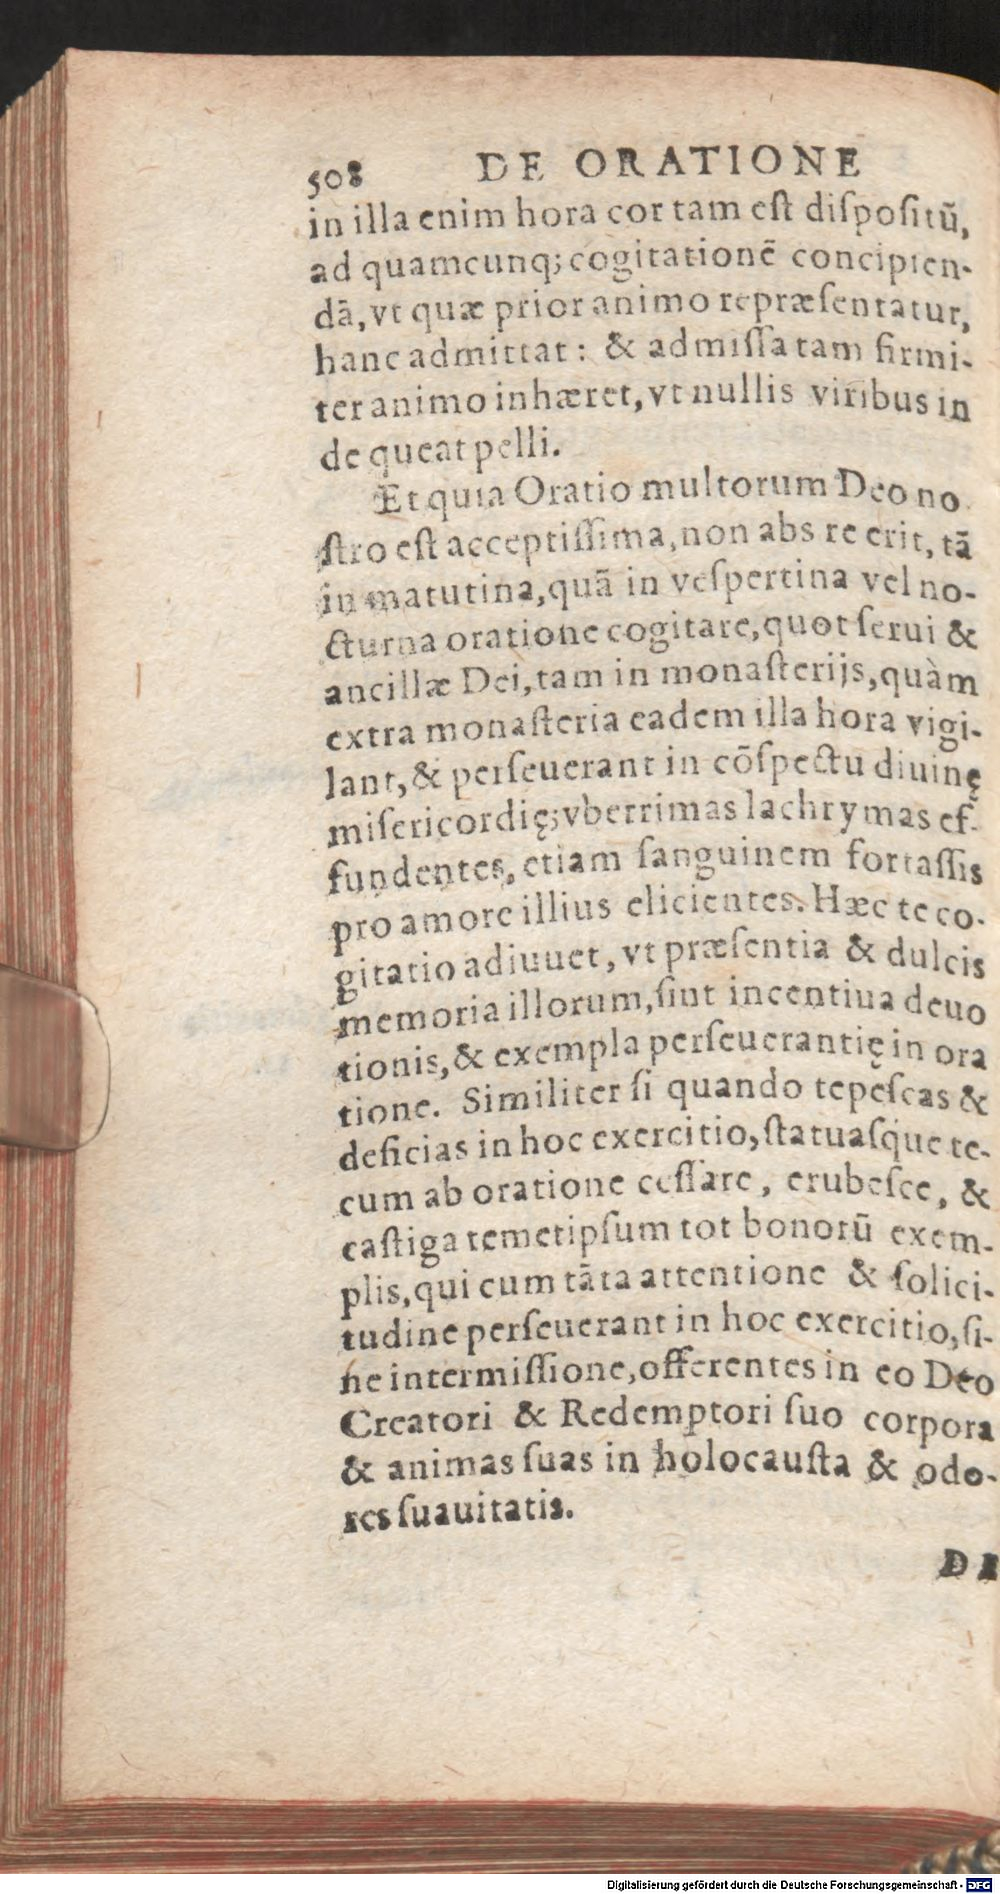 508 DE ORATIONE
in illa enim hora cor tam eſt diſpoſitũ,
ad quamcunq; cogitationẽ concipien-
dã, vt quæ prior animo repræſentatur,
hanc admittat: & admiſſa tam firmi-
ter animo inhæret, vt nullis viribus in
de queat pelli.
Et quia Oratio multorum Deo no
ſtro eſt acceptiſſima, non abs re erit, tã
in matutina, quã in veſpertina vel no-
cturna oratione cogitare, quot ſerui &
ancillæ Dei, tam in monaſterijs, quàm
extra monaſteria eadem illa hora vigi-
lant, & perſeuerant in cõſpectu diuinę
miſericordię; vberrimas lachrymas ef-
fundentes, etiam ſanguinem fortaſſis
pro amore illius elicientes. Hæc te co-
gitatio adiuuet, vt præſentia & dulcis
memoria illorum, ſint incentiua deuo
tionis, & exempla perſeuerantię in ora
tione. Similiter ſi quando tepeſcas &
deficias in hoc exercitio, ſtatuaſque te-
cum ab oratione ceſſare, erubeſce, &
caſtiga temetipſum tot bonorũ exem-
plis, qui cum tãta attentione & ſolici-
tudine perſeuerant in hoc exercitio, ſi-
ne intermiſſione, offerentes in eo Deo
Creatori & Redemptori ſuo corpora
& animas ſuas in holocauſta & odo-
res ſuauitatis.
DE
Digitalisierung gefördert durch die Deutsche Forschungsgemeinschaft - DFG